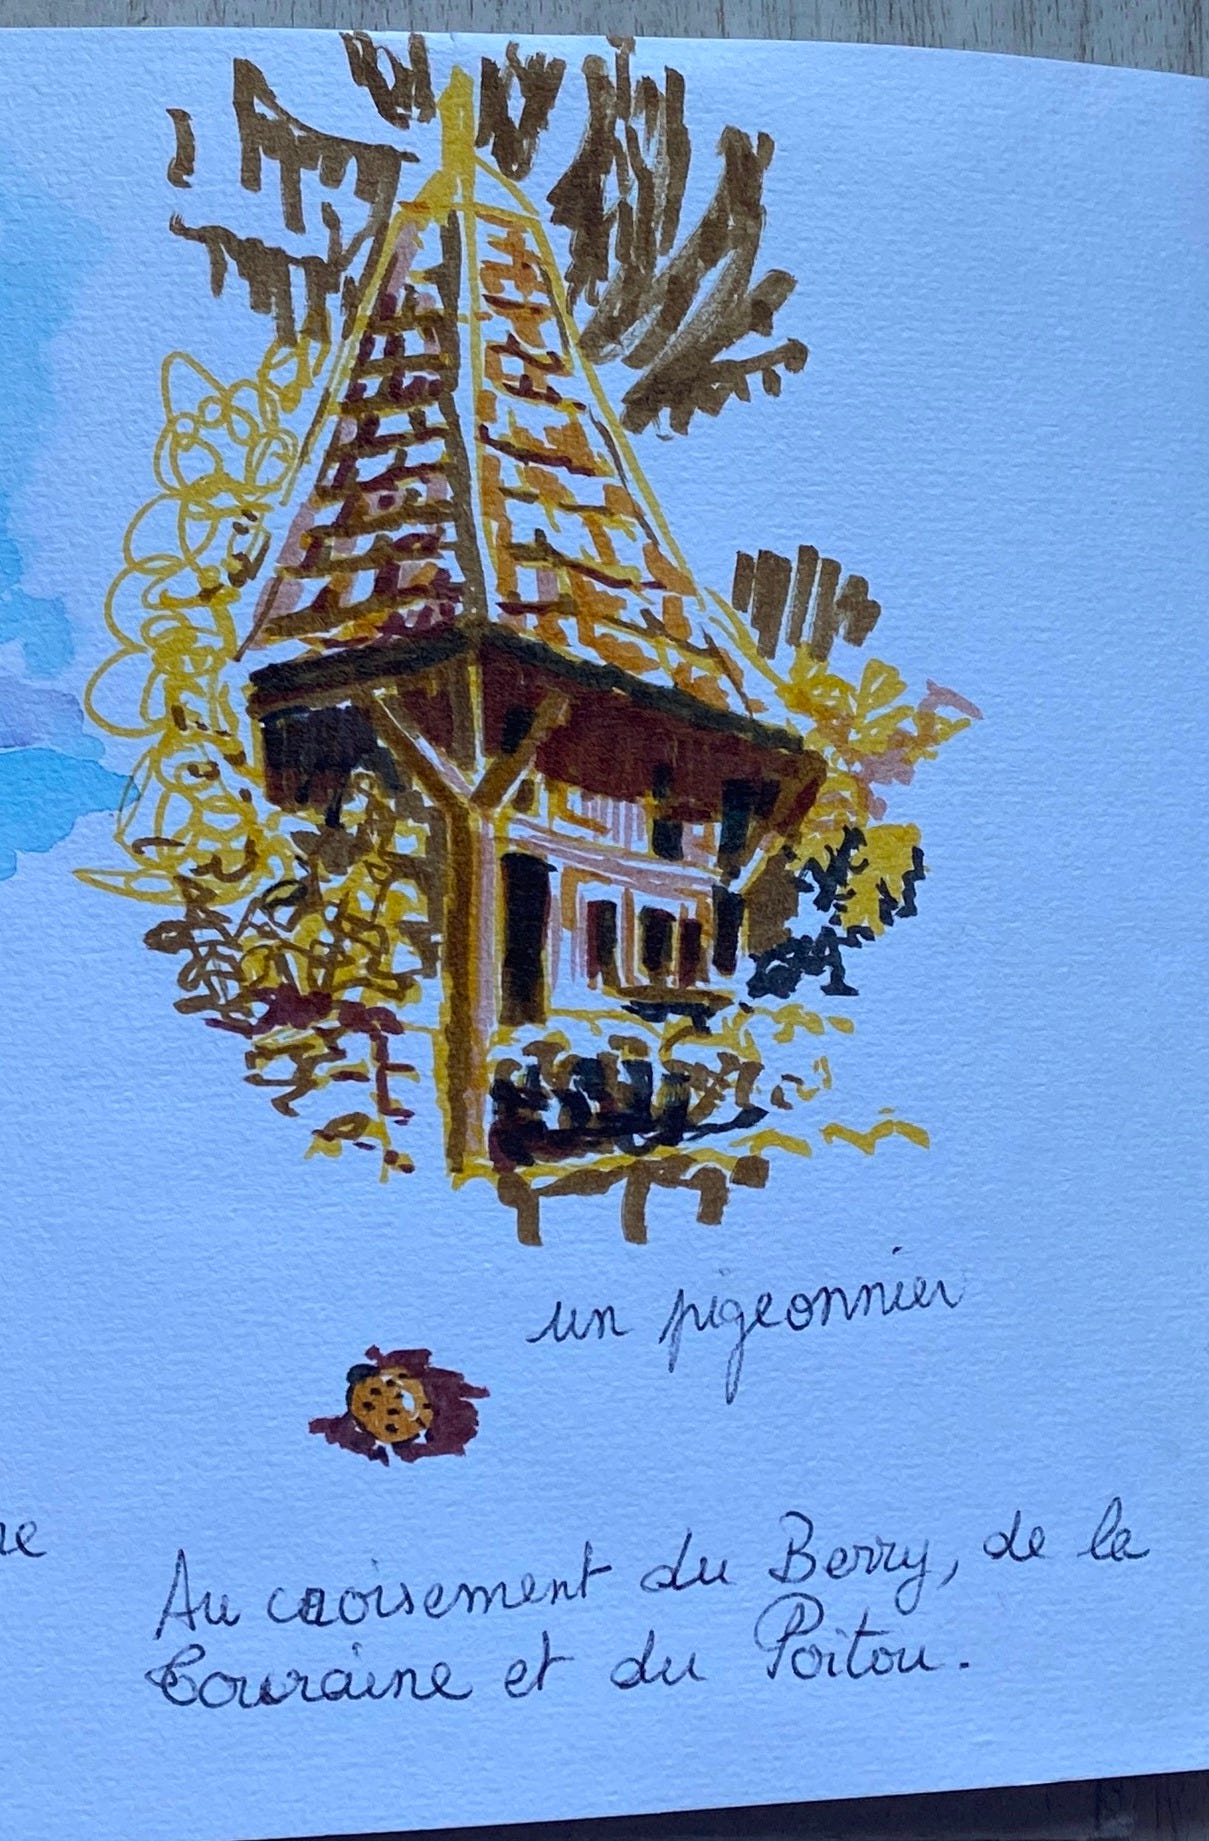 un pigeonnier
Au croisement du Berry, de la
Touraine et du Poitou.